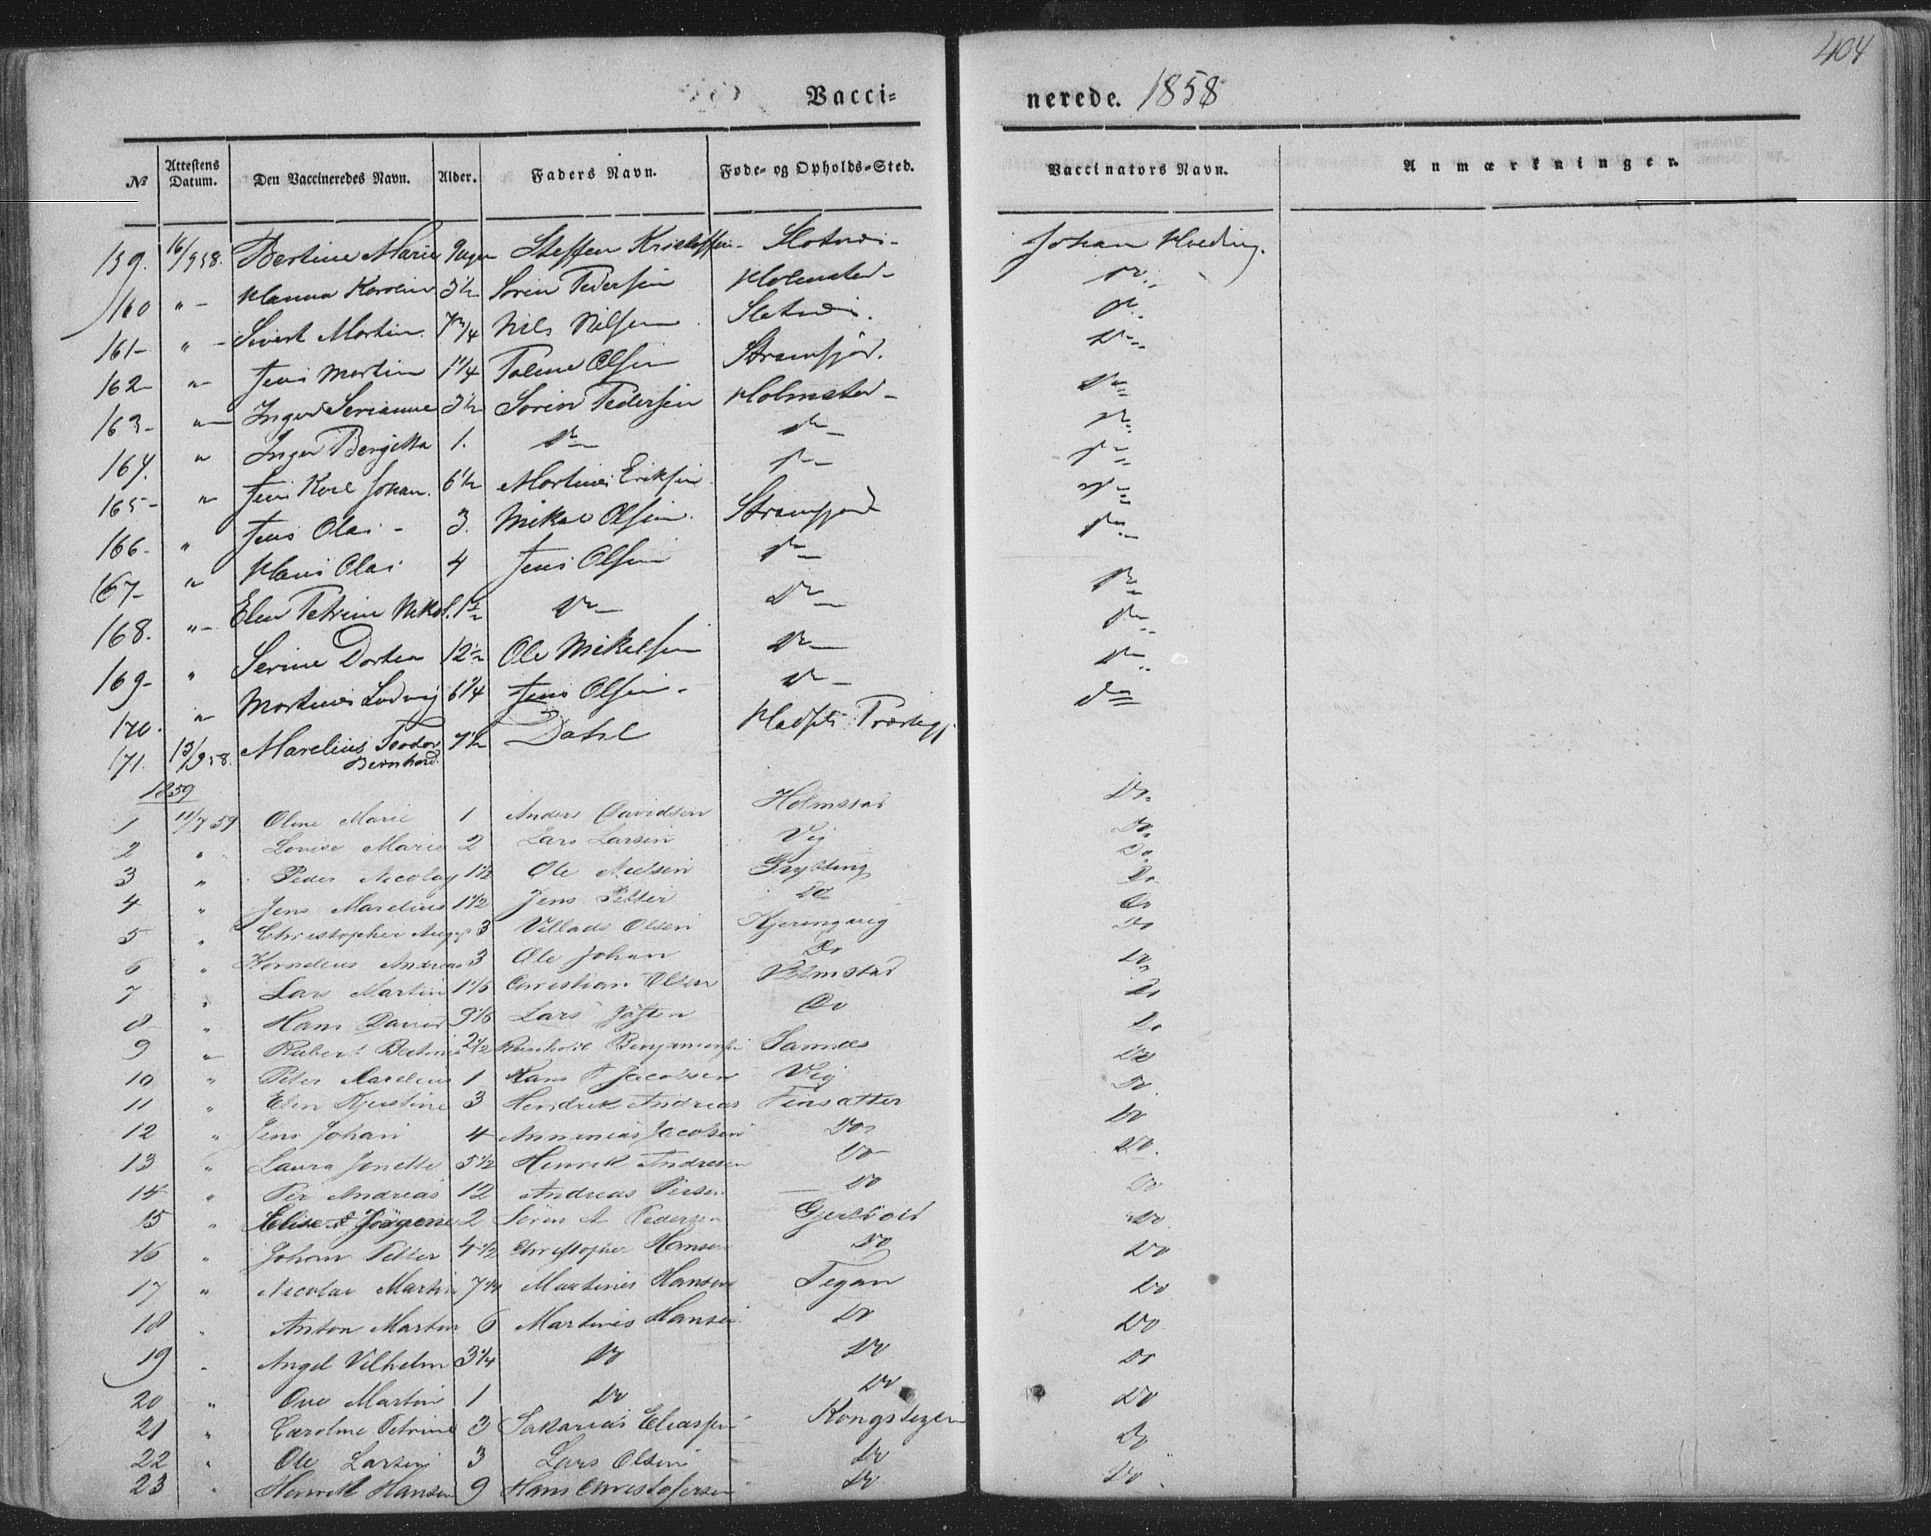 404
Vacci- nerede. 1858
№ Attestens Datum. Den Vaccineredes Navn. Alder. Faders Navn. Føde- og Opholds-Sted. Vaccinators Navn. Anmærkninger.
159. 16/9 58. Bertine Marie Steffen Johan
160 " - Hanna 3½ Sören Pedersen Holmsted - Do
161- " - Sivert Martin. 7 3/4 Nils Nilsen Do
162- " Jens Martin 1 1/4 Olsen Strømfjord. Do
163- " Inger Serianne 3½ Sören Pedersen Holmsted - Do
164. " Inger Bergitta 1. Do Do Do
165- " Jens Karl Johan. 6½ Martines Eriksen Do Do
166- " Jens Olai - 3. Mikal Olsen. Strømfjord Do
167- " Hans Olai 4 Jens Olsen Do Do
168. " - Elen Petrine Nikol. 1½ Do Do Do
169- " Serine Dortea 12½ Ole Mikelsen Do Do
170. " Martines Ludvig 6 1/4 Jens Olsen - Do Do
171. 13/9 58. Marelius Teodor 7½ Dahl Do
Bernhard
1859
1 11/7 59 Oline Marie 1 Anders Davidsen Holmstad Do
2 " Lovise Marie 2 Lars Larsen Vig Do
3 " Peder Nicolay 1½ Ole Nielsen Grytting Do
4 " Jens Marelius 1½ Jens Petter Do Do
5 " Christopher Aug 3 Villads Olsen Kjeringvig Do
6 " Kornelius Andreas 3 Ole Johan Do Do
7 " Lars Martin 1 1/6 Christian Olsen Holmstad Do
8 " Hans David 9 1/6 Lars Do Do
9 " 2½ Benjaminsen Sannes Do
10 " Peter Marelius 1 Hans Jacobsen Vig Do
11 " Elen Kjerstine 3 Hendrik Andreas Finsætter Do
12 " Jens Johan 4 Annanias Jacobsen Do Do
13 " Laura Jonette 5½ Henrik Andresen Do Do
14 " Per Andreas 12 Andreas Persen Do Do
15 " Elise Jørgene 2 Sören A Pedersen Do
16 " Johan Petter 4½ Christopher Hansen Do Do
17 " Nicolai Martin 7 1/4 Martines Hansen Tegan Do
18 " Anton Martin 6 Martines Hansen Do Do
19 " Angel Vilhelm 3 1/4 Do Do Do
20 " Ove Martin 1 Do Do Do
21 " Caroline Petrine 3 Sakarias Eliassen Do
22 " Ole Larsen 3 Lars Olsen Do Do
23 " Henrik Hansen 9 Hans Christofersen Do Do